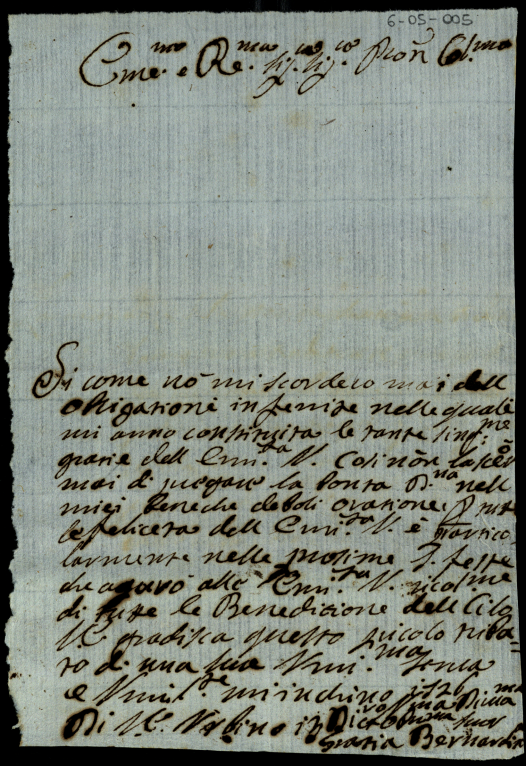 6-05-005
Em.mo e Re.mo Sig.re Sig.re Pron Col.mo
Si come nõ mi scordero mai dell
obligatione infenite nelle quale
mi anno constituita le tante sing.re
gratie dell Emi.za V. Cosi nõn lascerò
mai di pregare la bonta D.na nell
miei beneche deboli orationei P tute
le feliceta dell Emi.za V. è partico
larmente nelle prosime S. feste
che auguro alle Emi.za V. ricolme
di tutte le Benedicione dell Cilo
V.E. gradisca questo picolo tribu
to di una sua Umi.ma Serua
e Umi.te mi inchino
Di V.E. Urbino
Suor
Gratia Bernardi